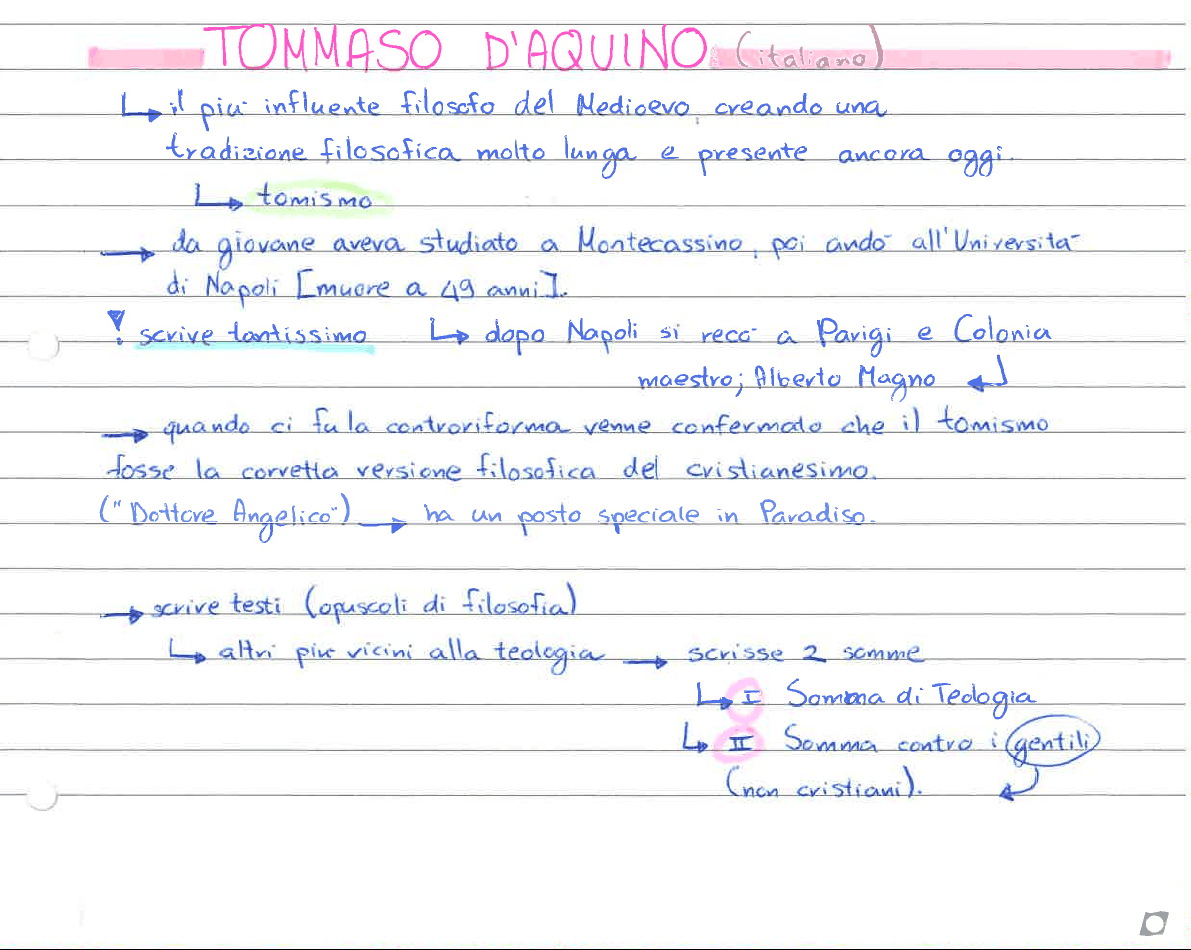 TOMMASO D'AQUINO (italiano)
↳ il più influente filosofo del Medioevo, creando una
tradizione filosofica molto lunga e presente ancora oggi.
↳ tomismo
→ da giovane aveva studiato a Montecassino, poi andò all'Università
di Napoli [muore a 49 anni].
! scrive tantissimo ↳ dopo Napoli si recò a Parigi e Colonia
maestro; Alberto Magno ↲
→ quando ci fu la controriforma venne confermato che il tomismo
fosse la corretta versione filosofica del cristianesimo.
("Dottore Angelico") → ha un posto speciale in Paradiso.
→ scrive testi (opuscoli di filosofia)
↳ altri più vicini alla teologia → scrisse 2 somme
↳ I Somma di Teologia
↳ II Somma contro i gentili
(non cristiani). ↲